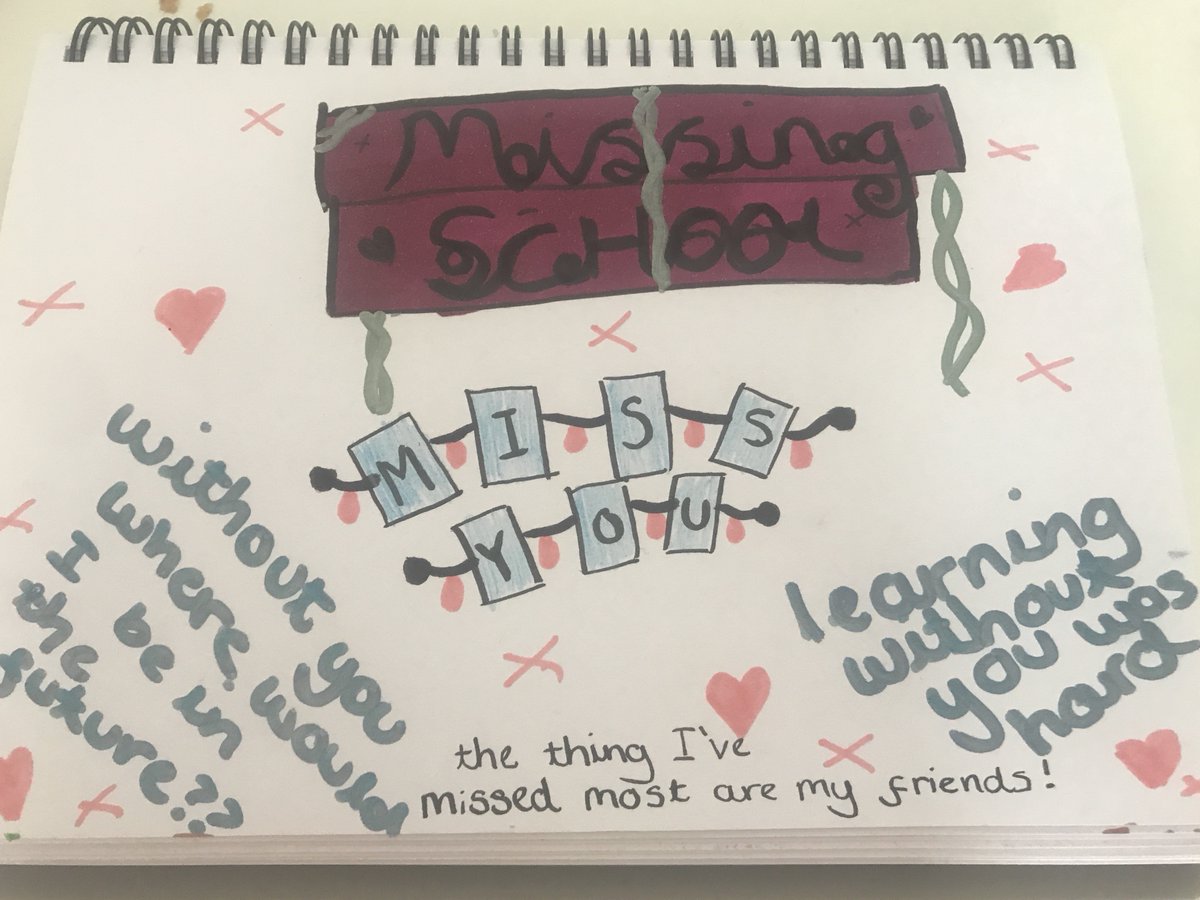 Missing
SCHOOL
MISS
YOU
without you
where would
I be in
the
future??
learning
without
you was
hard
the thing I've
missed most are my friends!